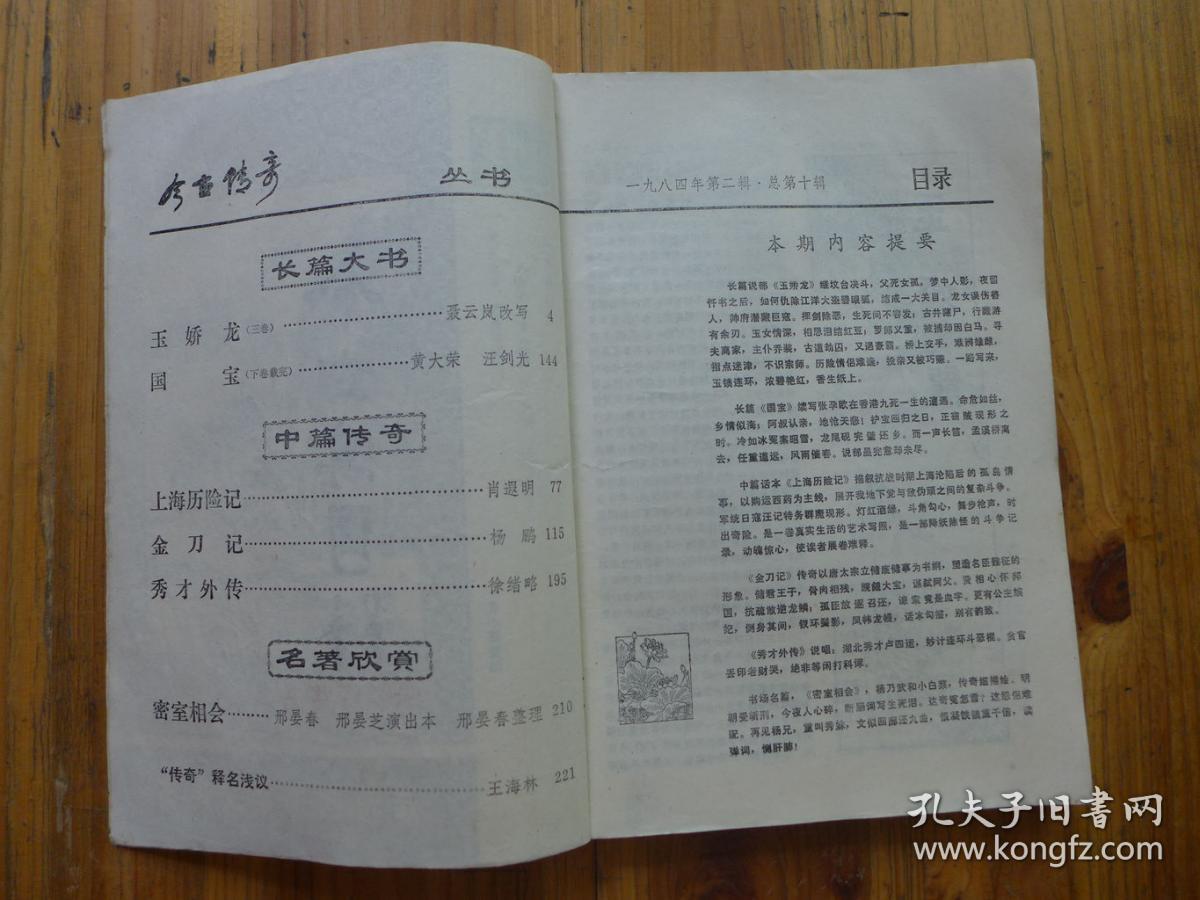 今古传奇 丛书
长篇大书
玉娇龙(三卷)……聂云岚改写 4
国宝(下卷载完)……黄大荣 汪剑光 144
中篇传奇
上海历险记……肖遐明 77
金刀记……杨鹏 115
秀才外传……徐绪略 195
名著欣赏
密室相会……邢晏春 邢晏芝演出本 邢晏春整理 210
“传奇”释名浅议……王海林 221
一九八四年第二辑·总第十辑 目录
本期内容提要
长篇说部《玉娇龙》继坟台决斗，父死女孤，梦中人影，夜留
忏书之后，如何仇除江洋大盗碧眼狐，结成一大关目。龙女误伤
人，帅府潜藏巨寇。挥剑除恶，生死间不容发；古井藏尸，行藏游
有余刃。玉女情深，相思泪结红豆；罗郎义重，被捕却因白马。寻
夫离家，主仆乔装，古道劫囚，又遇豪霸。桥上交手，难辨雄雌，
指点迷津，不识宗师。历险情侣难逢，投亲又被巧赚。一路写来，
玉锁连环，浓碧艳红，香生纸上。
长篇《国宝》续写张孕歌在香港九死一生的遭遇。命危如丝，
乡情似海；阿叔认亲，地怆天悲！护宝回归之日，正窃贼现形之
时。冷如冰冤案昭雪，龙尾砚完璧还乡。而一声长笛，孟溪桥离
去，任重道远，风雨催春。说部虽完意却未尽。
中篇话本《上海历险记》描叙抗战时期上海沦陷后的孤岛情
事，以购运西药为主线，展开我地下党与敌伪顽之间的复杂斗争。
军统日寇汪记特务群魔现形。灯红酒绿，斗角勾心，舞步枪声，时
出奇险。是一卷真实生活的艺术写照，是一部降妖除怪的斗争记
录，动魄惊心，使读者展卷难释。
《金刀记》传奇以唐太宗立储废储事为书纲，塑造名臣魏征的
形象。储君王子，骨肉相残，觊觎大宝，谋弑阿父。贤相心怀邦
国，抗疏敢逆龙鳞；孤臣放逐召还，谏表竟是血字。更有公主嫔
妃，侧身其间，钗环鬓影，凤帏龙幔，话本勾描，别有韵致。
《秀才外传》说唱：湖北秀才卢四运，妙计连环斗恶棍。贪官
丢印老财哭，绝非等闲打科诨。
书场名篇，《密室相会》，杨乃武和小白菜，传奇姻缘绘。明
朝受斩刑，今夜人心碎，断肠词写生死泪。达奇冤怎雪？这怨侣难
配。再见杨兄，重叫秀妹，文似回廊还九曲，情凝铁锁重千倍，读
弹词，恻肝肺！
孔夫子旧书网
www.kongfz.com